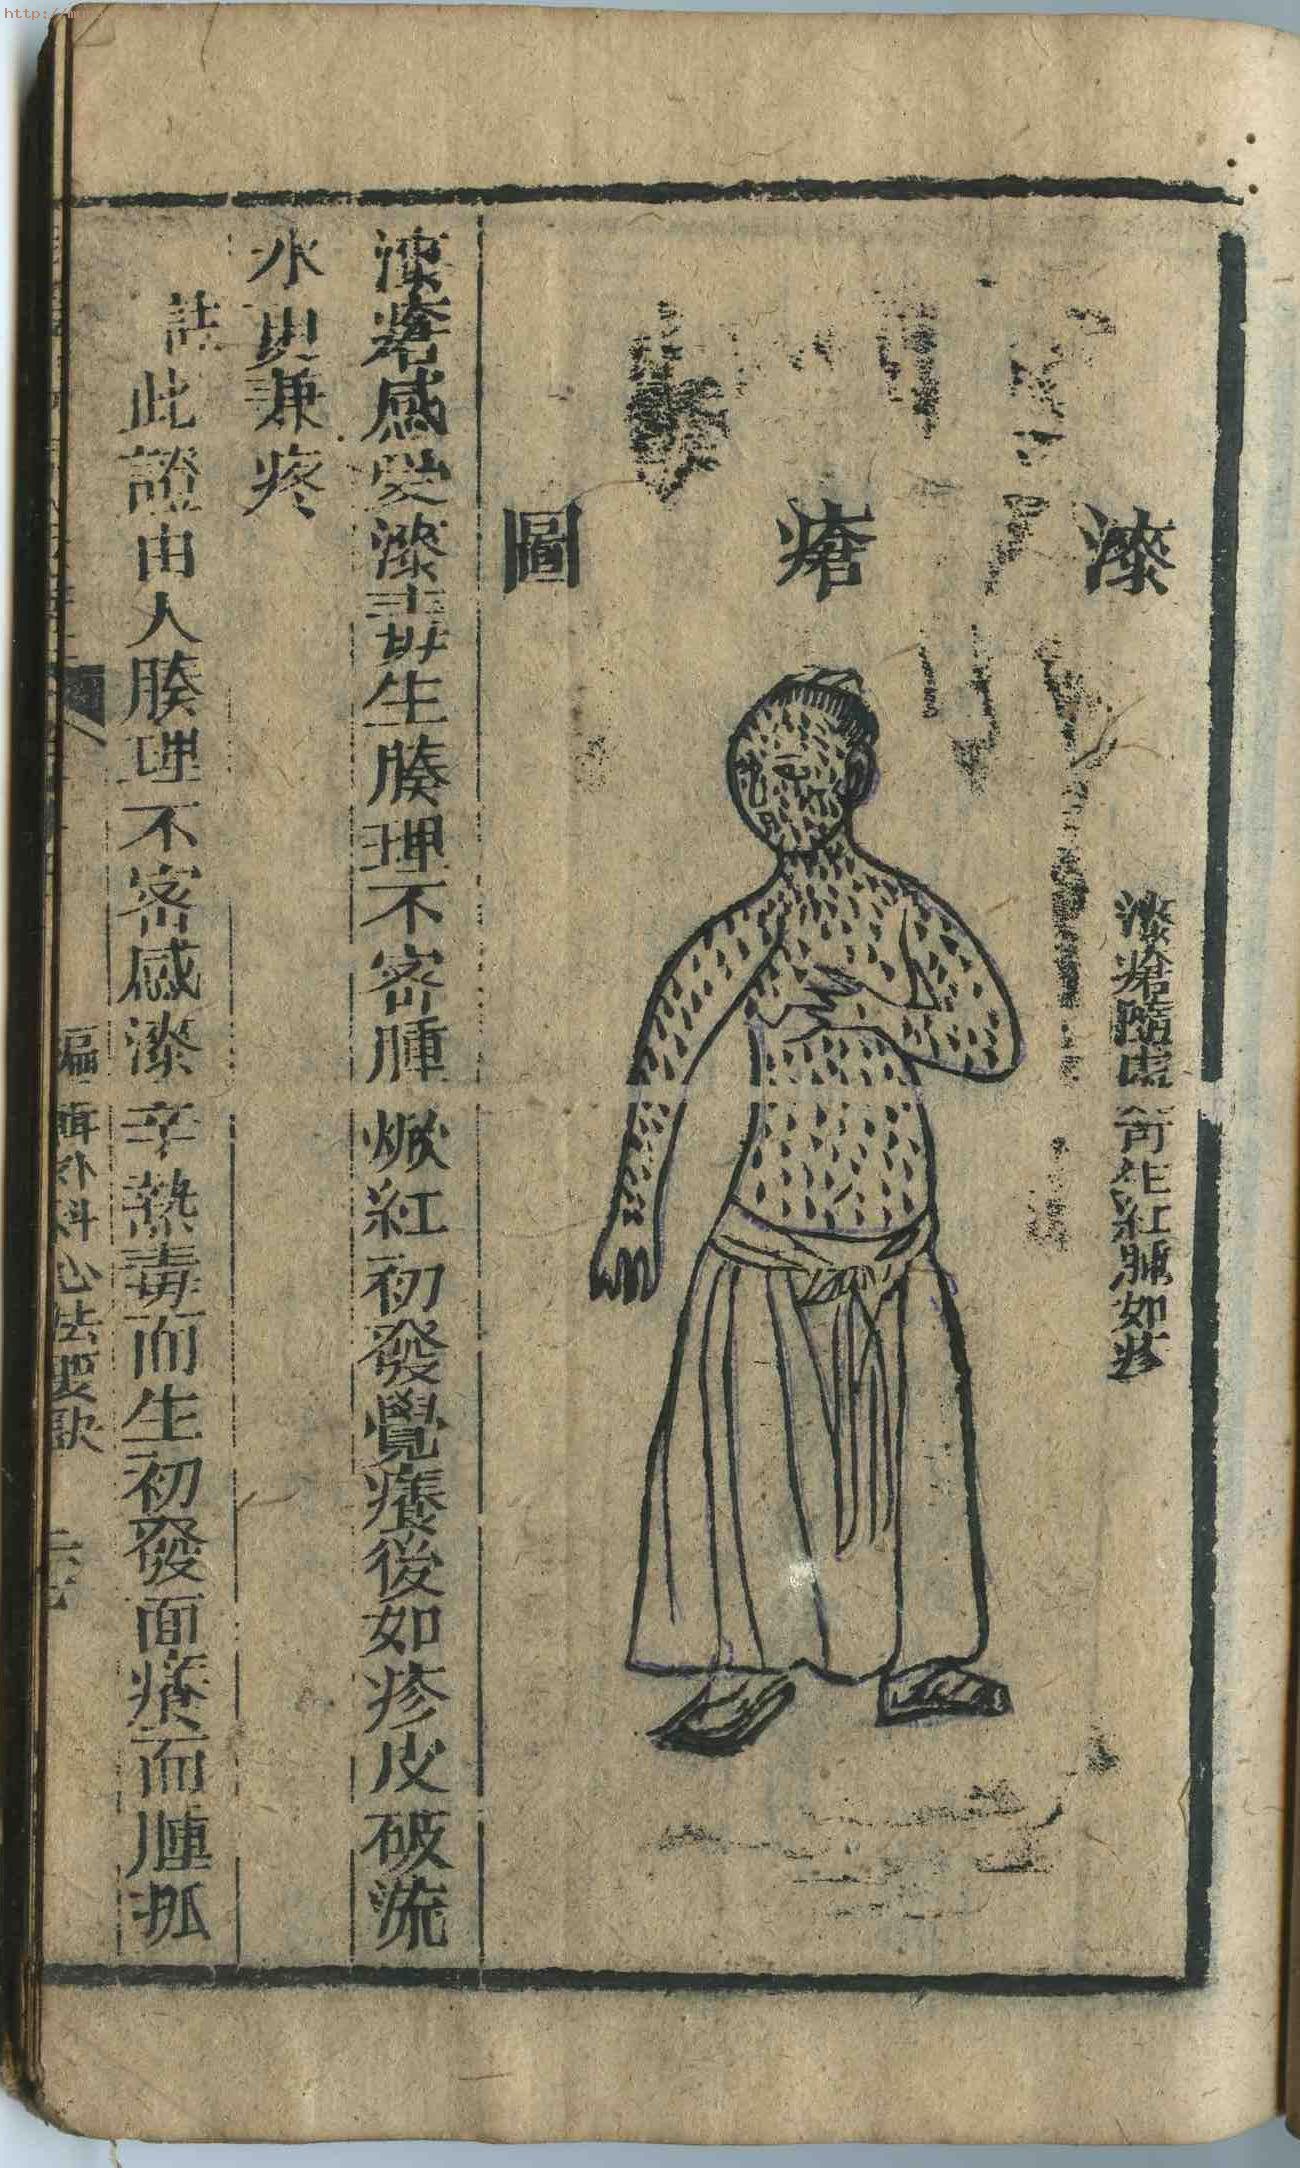 漆瘡圖
漆瘡隨處 紅腫如疹
漆瘡感受漆毒生腠理不密腫焮紅初發覺癢後如疹皮破流
水更兼疼
註
此證由人腠理不密感漆辛熱毒而生初發面癢而腫抓
編輯外科心法要訣